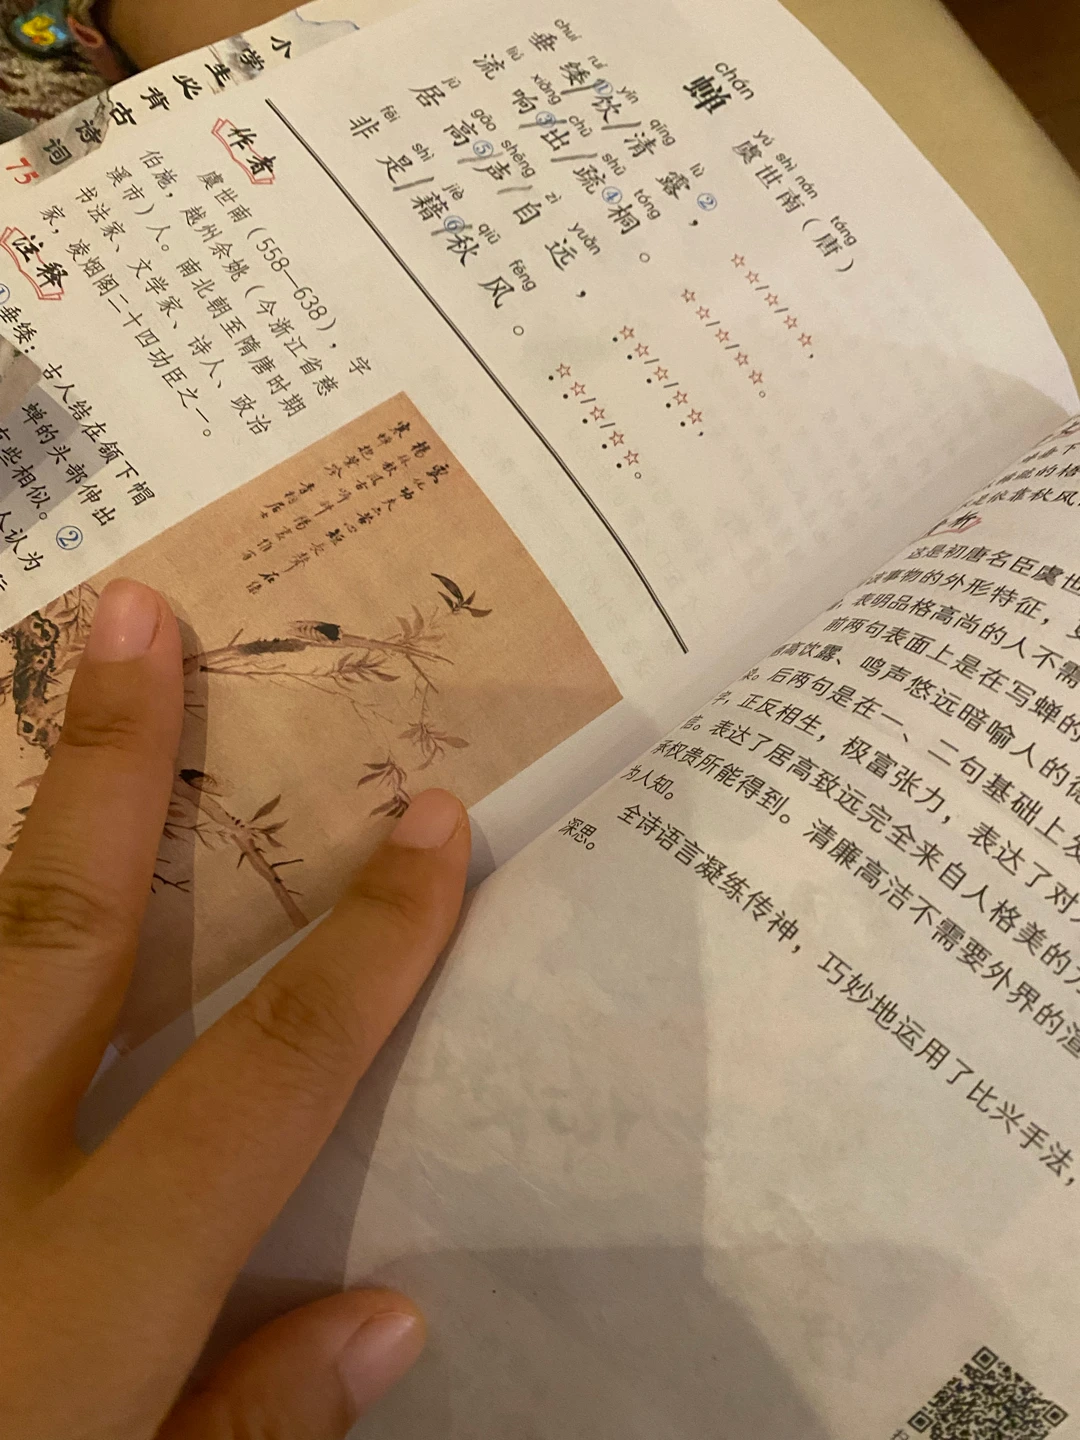 小学生必背古诗词75
chán
蝉
yú shì nán táng
虞世南（唐）
chuí ruí yǐn qīng lù
垂緌①/饮/清露②，
liú xiǎng chū shū tóng
流响③/出/疏④桐。
jū gāo shēng zì yuǎn
居高⑤/声/自远，
fēi shì jiè qiū fēng
非是/藉⑥/秋风。
☆☆/☆/☆☆，
☆☆/☆/☆☆。
☆☆/☆/☆☆，
☆☆/☆/☆☆。
作者
虞世南（558—638），字
伯施，越州余姚（今浙江省慈
溪市）人。南北朝至隋唐时期
书法家、文学家、诗人、政治
家，凌烟阁二十四功臣之一。
注释
①垂緌：古人结在颔下帽
蝉的头部伸出
有些相似。②
人认为
是依靠秋风
析
这是初唐名臣虞世
事物的外形特征，
表明品格高尚的人不需
前两句表面上是在写蝉的
高饮露、鸣声悠远暗喻人的
。后两句是在一、二句基础上发
字，正反相生，极富张力，表达了对
。表达了居高致远完全来自人格美的力
承权贵所能得到。清廉高洁不需要外界的渲
为人知。
全诗语言凝练传神，巧妙地运用了比兴手法，
深思。